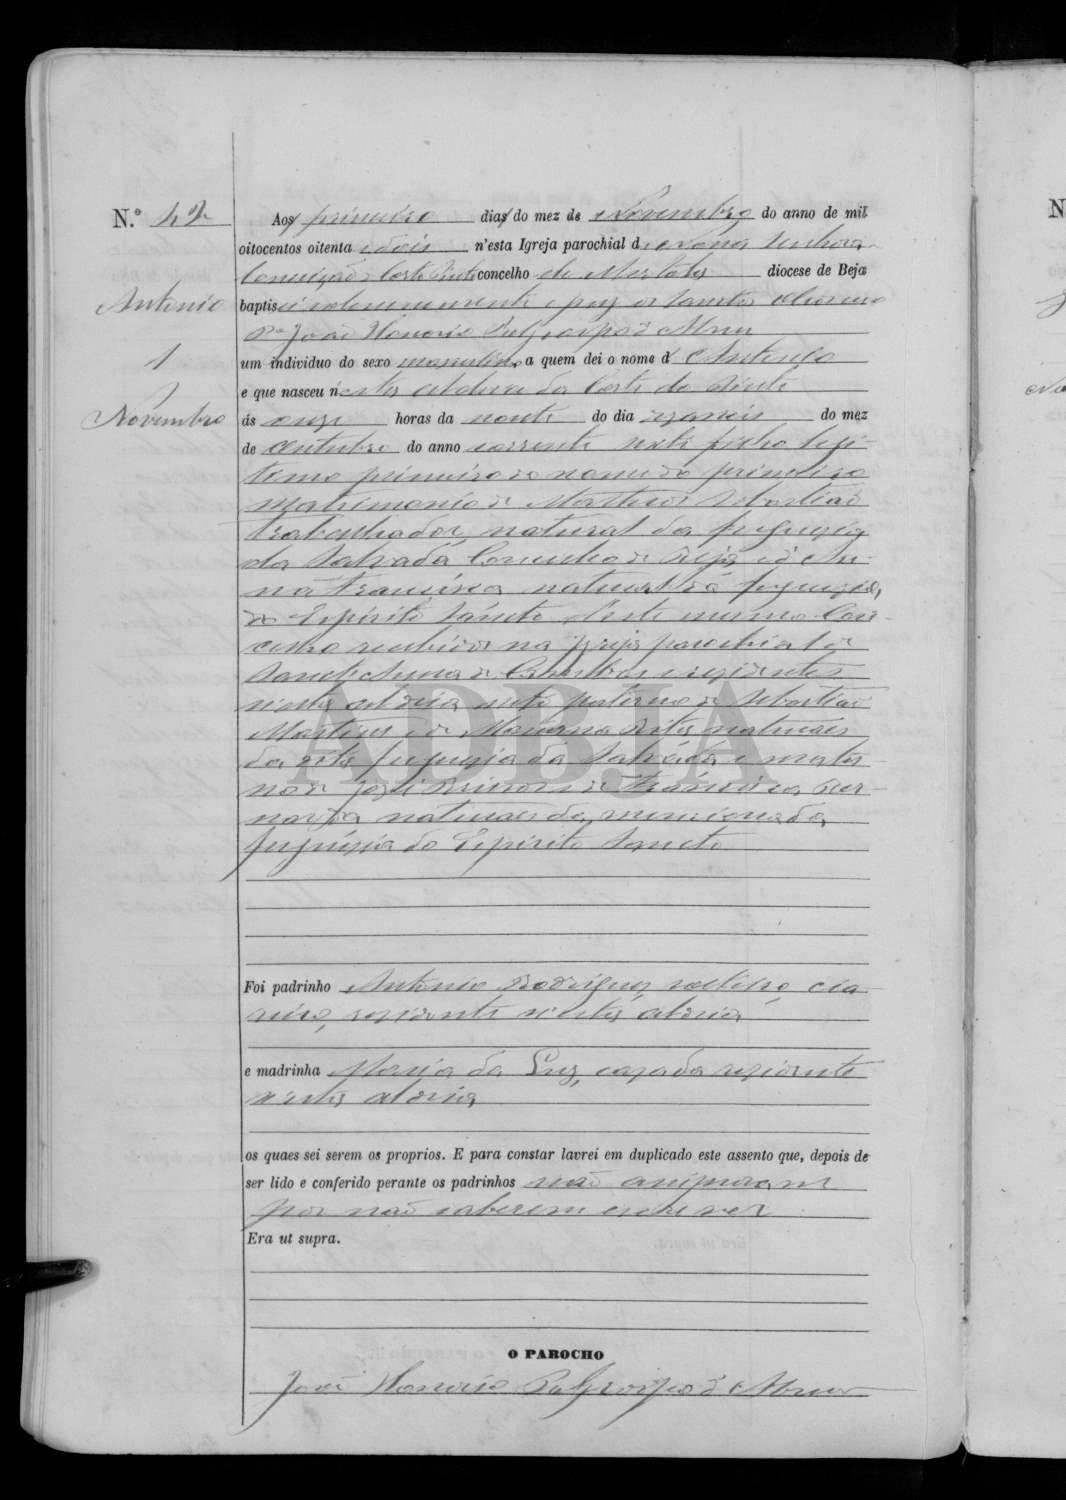 N.º 42
Antonio
1
Novembro
Aos primeiro dias do mez de Novembro do anno de mil
oitocentos oitenta e dois n'esta Igreja parochial de Nossa Senhora
Conceição Corte Pinto concelho de Mertola diocese de Beja
baptisei solemnemente e puz os Santos Oleos
João Honorio d'Abreu
um individuo do sexo masculino a quem dei o nome d' Antonio
e que nasceu n'esta aldeia da Corte do Pinto
ás onze horas da noute do dia do mez
de Outubro do anno corrente filho legi-
timo primeiro do nome do primeiro
matrimonio de Matheus Sebastião
trabalhador, natural da freguezia
da Salvada Concelho de Beja e de An-
na Francisca natural da freguezia
do Espirito Santo d'este mesmo Con-
celho recebidos na Igreja parochial de
Sant'Anna de Cambas e residentes
n'esta aldeia, neto paterno de Sebastião
Martins e de Marianna Rita naturaes
da dita freguezia da Salvada e mater-
no de José e de Francisca Ber-
narda naturaes da mencionada
freguezia do Espirito Sancto
ADBJA
Foi padrinho Antonio Rodrigues solteiro,
residente n'esta aldeia
e madrinha Maria da Luz, casada residente
n'esta aldeia
os quaes sei serem os proprios. E para constar lavrei em duplicado este assento que, depois de
ser lido e conferido perante os padrinhos não assignaram
por não saberem escrever
Era ut supra.
O PAROCHO
João Honorio d'Abreu